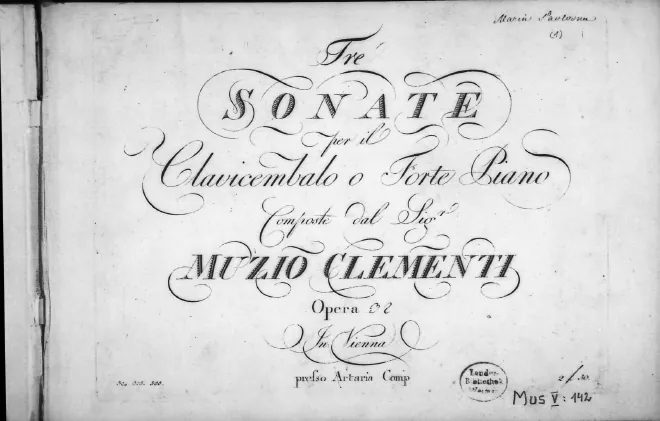 Maria Pawlowna
(1)
Tré
SONATE
per il
Clavicembalo o Forte Piano
Composte dal Sigr.
MUZIO CLEMENTI
Opera
In Vienna
presso Artaria Comp
Landes
Bibliothek
Mus V: 142